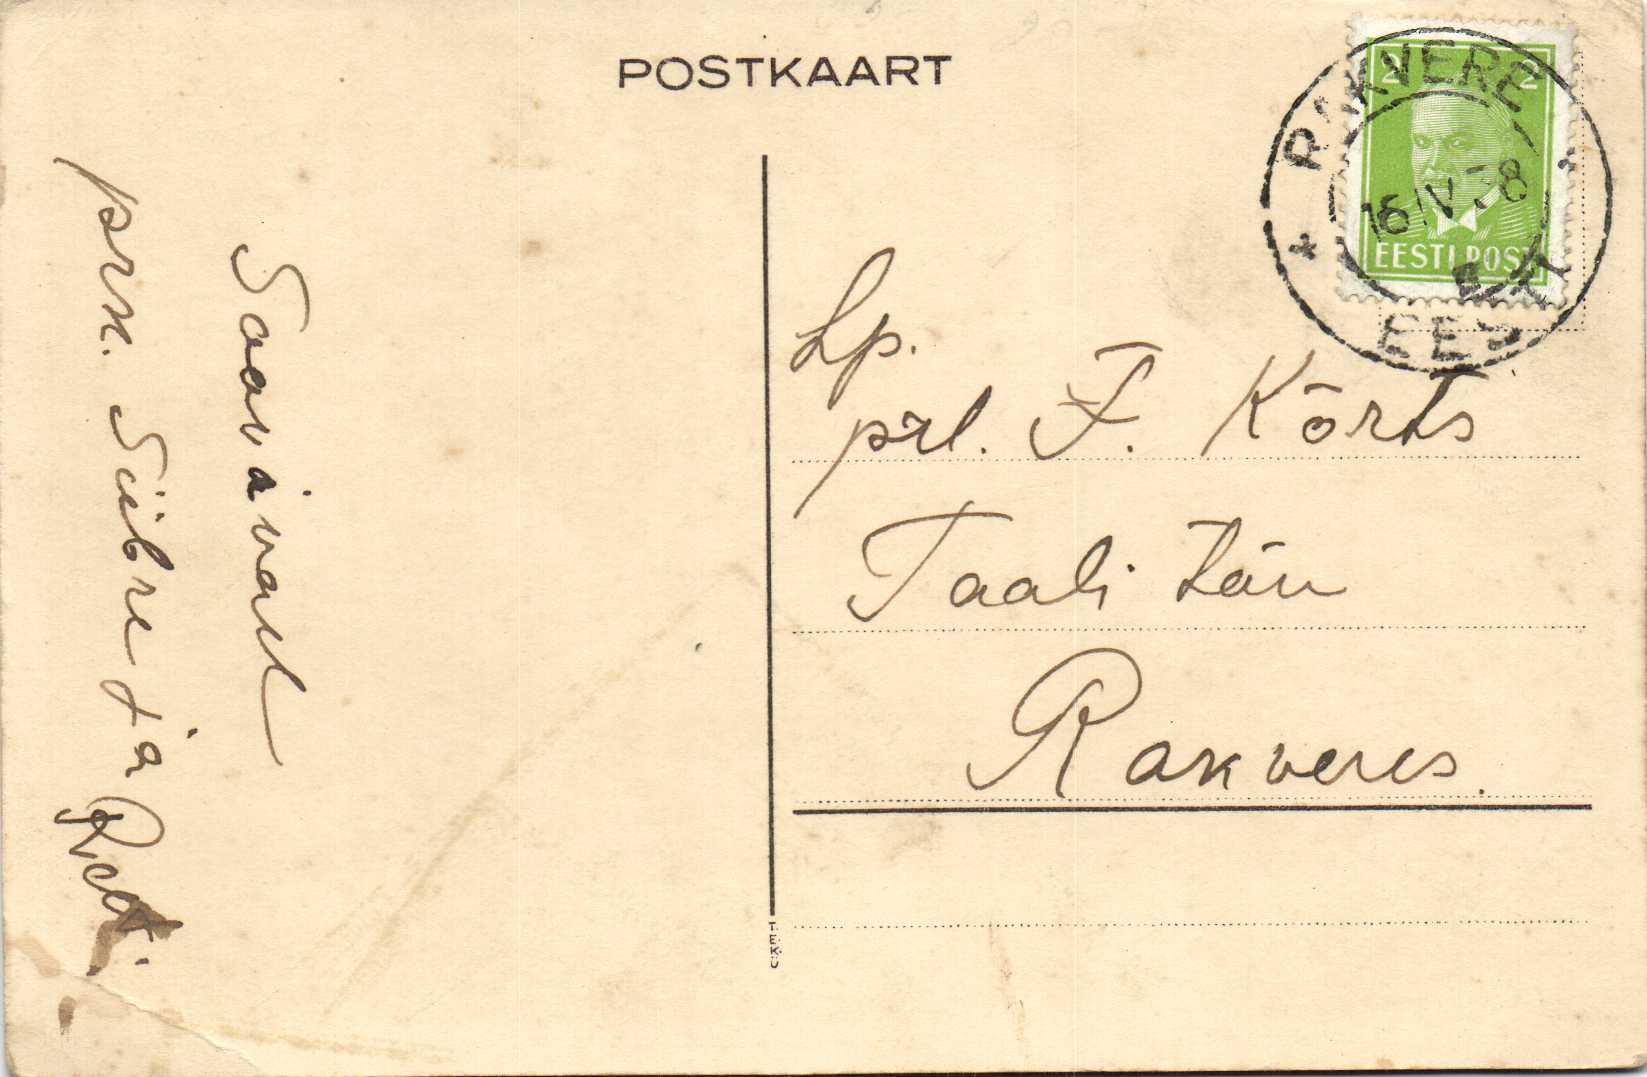 POSTKAART
Soovivad
prx. Sübre ja Reet.
RAKVERE
16 IV 38
EESTI
2 2
EESTI POST
Lp.
prl. F. Kõrts
Taali tän
Rakveres.